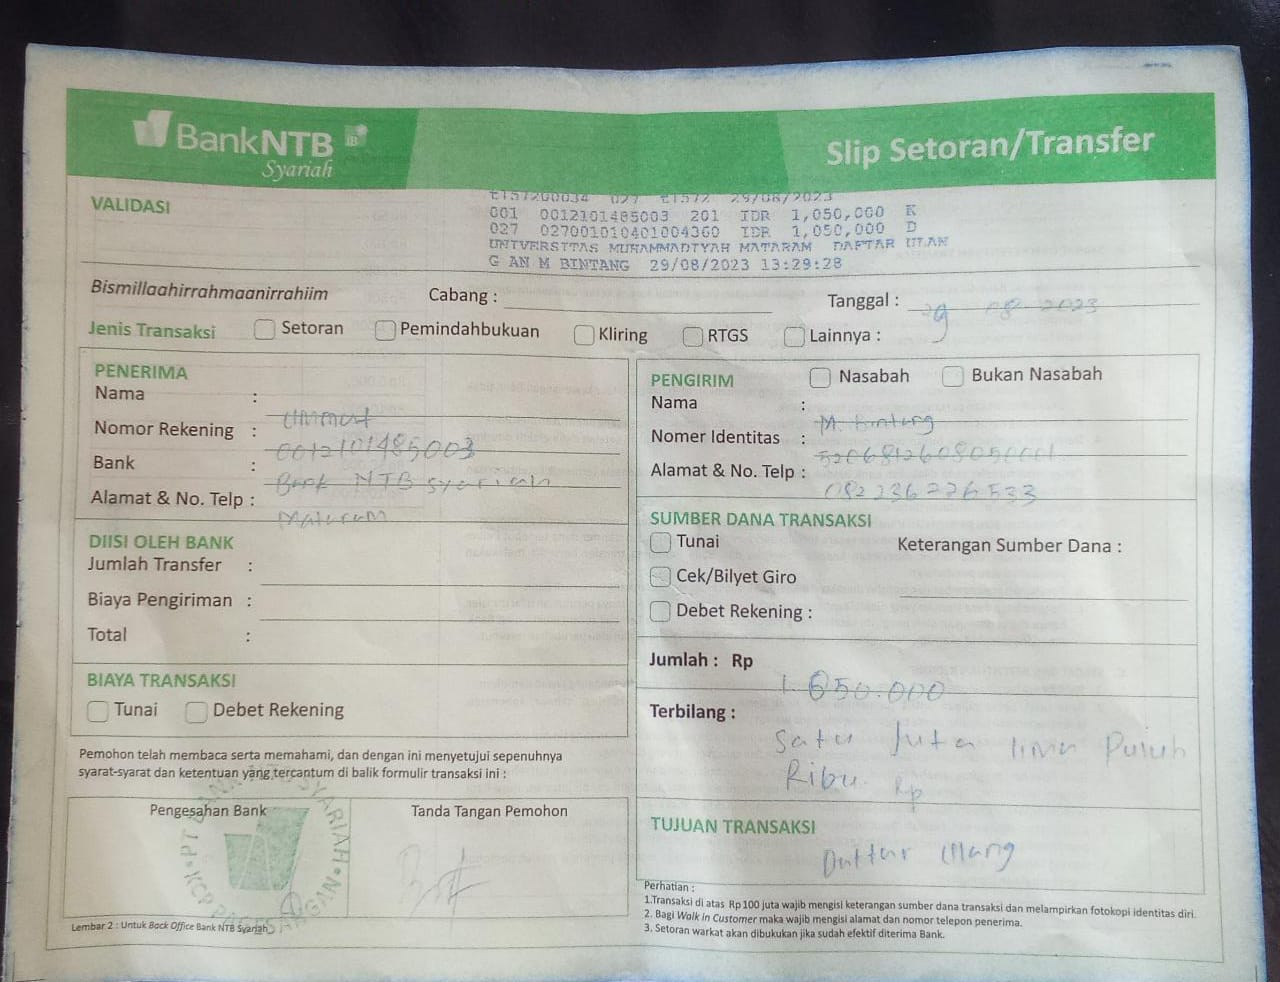 BankNTB
Syariah
Slip Setoran/Transfer
VALIDASI
027 29/08/2023
001 0012101485003 201 IDR 1,050,000 K
027 027001010401004360 IDR 1,050,000 D
UNIVERSITAS MUHAMMADIYAH MATARAM DAFTAR ULAN
G AN M BINTANG 29/08/2023 13:29:28
Bismillaahirrahmaanirrahiim
Cabang :
Tanggal : 29 08 2023
Jenis Transaksi
Setoran
Pemindahbukuan
Kliring
RTGS
Lainnya :
PENERIMA
Nama : Ummat
Nomor Rekening : 0012101485003
Bank : Bank NTB Syariah
Alamat & No. Telp : Mataram
PENGIRIM
Nasabah
Bukan Nasabah
Nama : M. Bintang
Nomer Identitas :
Alamat & No. Telp : 082236226533
DIISI OLEH BANK
Jumlah Transfer :
Biaya Pengiriman :
Total :
SUMBER DANA TRANSAKSI
Tunai
Keterangan Sumber Dana :
Cek/Bilyet Giro
Debet Rekening :
BIAYA TRANSAKSI
Tunai
Debet Rekening
Jumlah : Rp 1.050.000
Terbilang : Satu Juta lima Puluh
Ribu Rp
Pemohon telah membaca serta memahami, dan dengan ini menyetujui sepenuhnya
syarat-syarat dan ketentuan yang tercantum di balik formulir transaksi ini :
Pengesahan Bank
Tanda Tangan Pemohon
PT BANK NTB SYARIAH
KCP PAGESANGAN
TUJUAN TRANSAKSI
Daftar Ulang
Perhatian :
1.Transaksi di atas Rp100 juta wajib mengisi keterangan sumber dana transaksi dan melampirkan fotokopi identitas diri.
2. Bagi Walk in Customer maka wajib mengisi alamat dan nomor telepon penerima.
3. Setoran warkat akan dibukukan jika sudah efektif diterima Bank.
Lembar 2 : Untuk Back Office Bank NTB Syariah